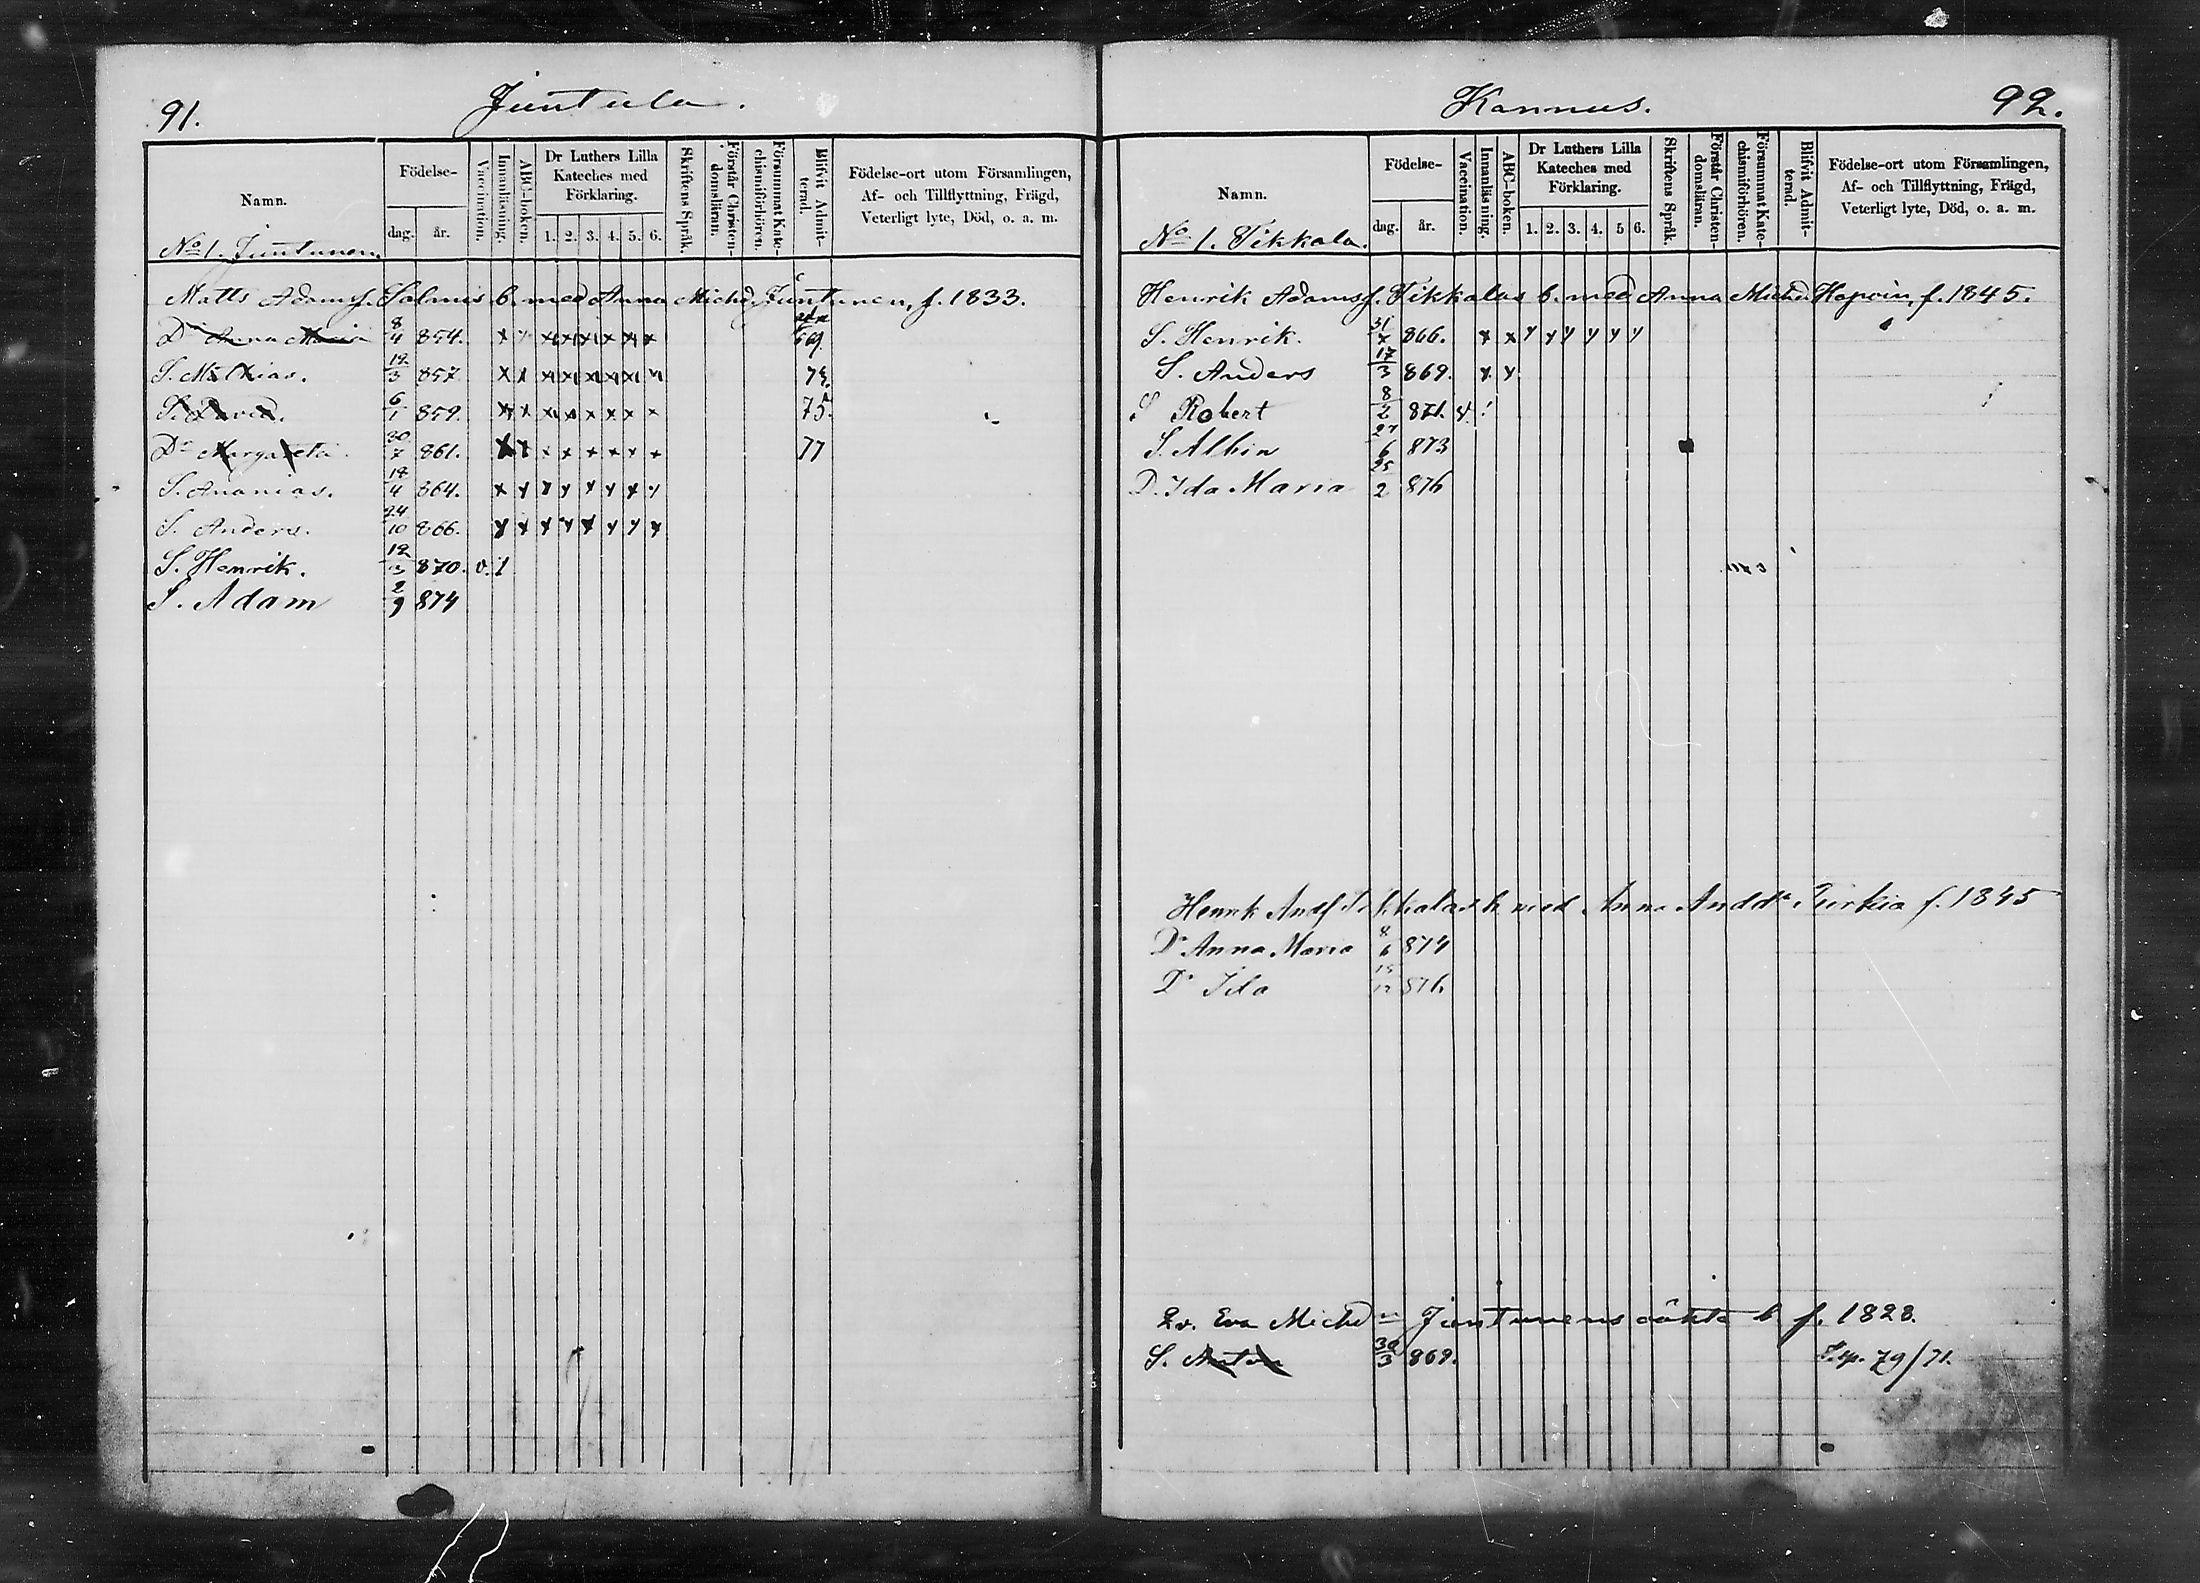 91.
Juntula.
Namn.
Födelse-
dag.
år.
Vaccination.
Innanläsning.
ABC-boken.
Dr Luthers Lilla
Kateches med
Förklaring.
1. 2. 3. 4. 5. 6.
Skriftens Språk.
Förstår Christen-
domsläran.
Försummat Kate-
chismiförhören.
Blifvit Admit-
terad.
Födelse-ort utom Församlingen,
Af- och Tillflyttning, Frägd,
Veterligt lyte, Död, o. a. m.
No 1. Juntunen.
Matts Adamsf. Salmis b. med Anna Michd. Juntunen, f. 1833.
Dr Anna Maria 8/4 854. x x x x x x x x 69.
S. Mathias. 12/3 857 x x x x x x x x
S. David. 6/1 859. x x x x x x x x 75.
Dr Margareta 30/7 861. x x x x x x x x 77
S. Ananias. 4 864. x x x x x x x x
S. Anders. 24/10 866. x x x x x x x x
S. Henrik. 12/3 870. v. 1
S. Adam 2/9 874
Kannus.
92.
Namn.
Födelse-
dag.
år.
Vaccination.
Innanläsning.
ABC-boken.
Dr Luthers Lilla
Kateches med
Förklaring.
1. 2. 3. 4. 5 6.
Skriftens Språk.
Förstår Christen-
domsläran.
Försummat Kate-
chismiförhören.
Blifvit Admit-
terad.
Födelse-ort utom Församlingen,
Af- och Tillflyttning, Frägd,
Veterligt lyte, Död, o. a. m.
No 1. Tikkala.
Henrik Adamsf. Tikkalas b. med Anna Michd. f. 1845.
S. Henrik. 866. x x y y y y y y
S. Anders 17/3 869. x y
S Robert 8/2 871. v.
S. Albin 27/6 873
D. Ida Maria 25/2 876
Henrik Andf Tikkalas b. med Anna Andd. Turkia f. 1845
Dr Anna Maria 8/6 874
Dr Ida 15/12 876
Qv. Eva Michd Juntunens oäkta b f. 1828.
S. Anton 30/3 869. 79/71.